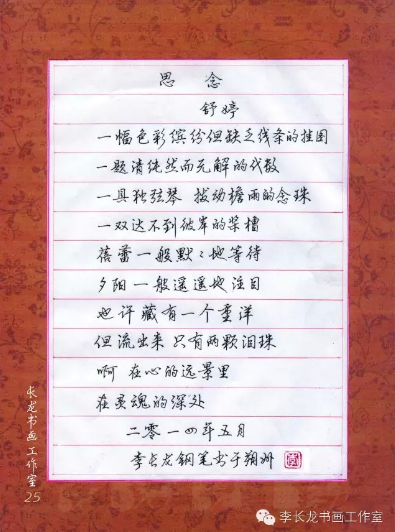 思念
舒婷
一幅色彩缤纷但缺乏线条的挂图
一题清纯然而无解的代数
一具独弦琴 拨动檐雨的念珠
一双达不到彼岸的桨橹
蓓蕾一般默々地等待
夕阳一般遥遥地注目
也许藏有一个重洋
但流出来 只有两颗泪珠
啊 在心的远景里
在灵魂的深处
二零一四年五月
李长龙钢笔书于朔州
长龙书画工作室
25
李长龙书画工作室